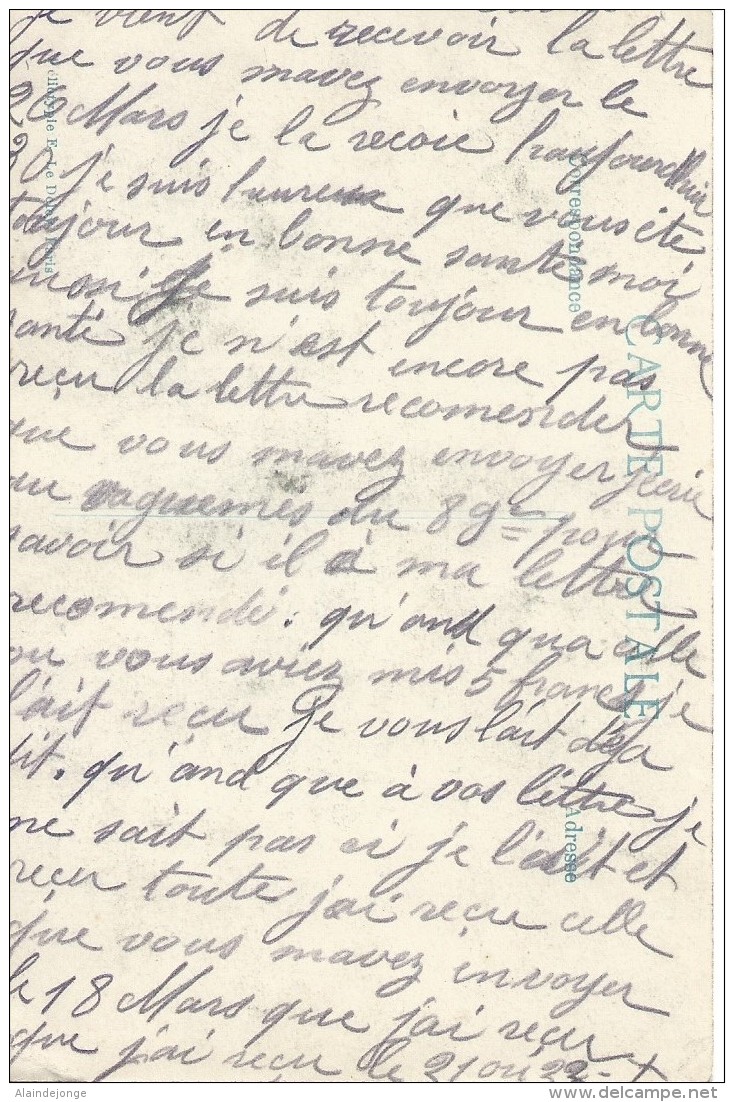 je vient de recevoir la lettre
que vous mavez envoyer le
26 Mars je la recoie haujourdhui
30 je suis heureux que vous ete
toujour en bonne sante moi
mon je suis toujour en bonne
santé je n'est encore pas
reçu la lettre recomender
que vous mavez envoyer jecrie
au vaguemes du 8 g= pour
savoir si il à ma lettre
recomendé. qu'and qua celle
ou vous aviez mis 5 francs je
l'ait reçu je vous l'ait deja
dit. qu'and que à vos lettre je
ne sait pas si je l'ait et
reçu toute j'ai reçu celle
que vous mavez envoyer
le 18 Mars que j'ai reçu
que j'ai reçu le 21 ou 22 - +
CARTE POSTALE
Correspondance
Adresse
E. Le Paris
Alaindejonge
delcampe.net